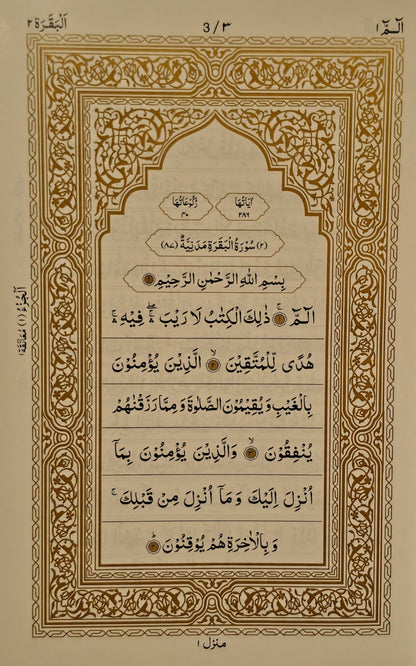 الٓمّٓ ١
3/٣
اَلْبَقَرَة ٢
اٰيَاتُهَا ٢٨٦
رُكُوْعَاتُهَا ٤٠
(٢) سُوْرَةُ الْبَقَرَةِ مَدَنِيَّةٌ (٨٧)
بِسْمِ اللّٰهِ الرَّحْمٰنِ الرَّحِيْمِ
الٓمّٓ ۚ ذٰلِكَ الْكِتٰبُ لَا رَيْبَ ۛۖ فِيْهِ ۛۚ
هُدًى لِّلْمُتَّقِيْنَ ۙ الَّذِيْنَ يُؤْمِنُوْنَ
بِالْغَيْبِ وَيُقِيْمُوْنَ الصَّلٰوةَ وَمِمَّا رَزَقْنٰهُمْ
يُنْفِقُوْنَ ۙ وَالَّذِيْنَ يُؤْمِنُوْنَ بِمَآ
اُنْزِلَ اِلَيْكَ وَمَآ اُنْزِلَ مِنْ قَبْلِكَ ۚ
وَبِالْاٰخِرَةِ هُمْ يُوْقِنُوْنَ ؕ
اَلْجُزْءُ (١) مُعَانَقَة ١
منزل ١